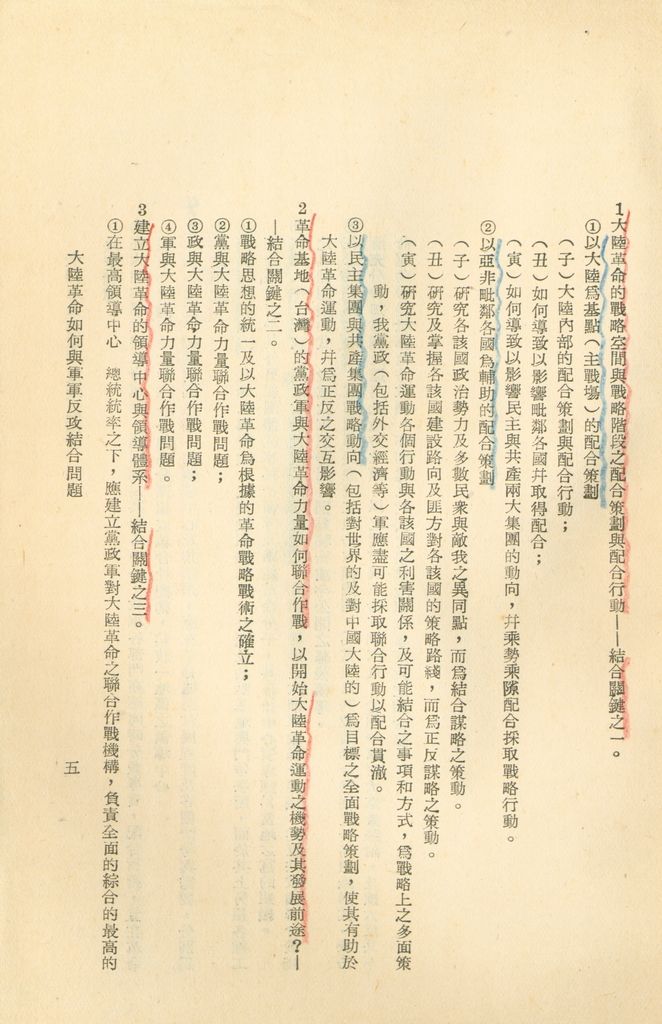 1大陸革命的戰略空間與戰略階段之配合策劃與配合行動——結合關鍵之一。
①以大陸爲基點（主戰場）的配合策劃
（子）大陸內部的配合策劃與配合行動；
（丑）如何導致以影響毗鄰各國幷取得配合；
（寅）如何導致以影響民主與共產兩大集團的動向，幷乘勢乘隙配合採取戰略行動。
②以亞非毗鄰各國爲輔助的配合策劃
（子）研究各該國政治勢力及多數民衆與敵我之異同點，而爲結合謀略之策動。
（丑）研究及掌握各該國建設路向及匪方對各該國的策略路綫，而爲正反謀略之策動。
（寅）研究大陸革命運動各個行動與各該國之利害關係，及可能結合之事項和方式，爲戰略上之多面策
動，我黨政（包括外交經濟等）軍應盡可能採取聯合行動以配合貫澈。
③以民主集團與共產集團戰略動向（包括對世界的及對中國大陸的）爲目標之全面戰略策劃，使其有助於
大陸革命運動，幷爲正反之交互影響。
2革命基地（台灣）的黨政軍與大陸革命力量如何聯合作戰，以開始大陸革命運動之機勢及其發展前途？—
—結合關鍵之二。
①戰略思想的統一及以大陸革命爲根據的革命戰略戰術之確立；
②黨與大陸革命力量聯合作戰問題；
③政與大陸革命力量聯合作戰問題；
④軍與大陸革命力量聯合作戰問題。
3建立大陸革命的領導中心與領導體系——結合關鍵之三。
①在最高領導中心　總統統率之下，應建立黨政軍對大陸革命之聯合作戰機構，負責全面的綜合的最高的
大陸革命如何與軍軍反攻結合問題
五